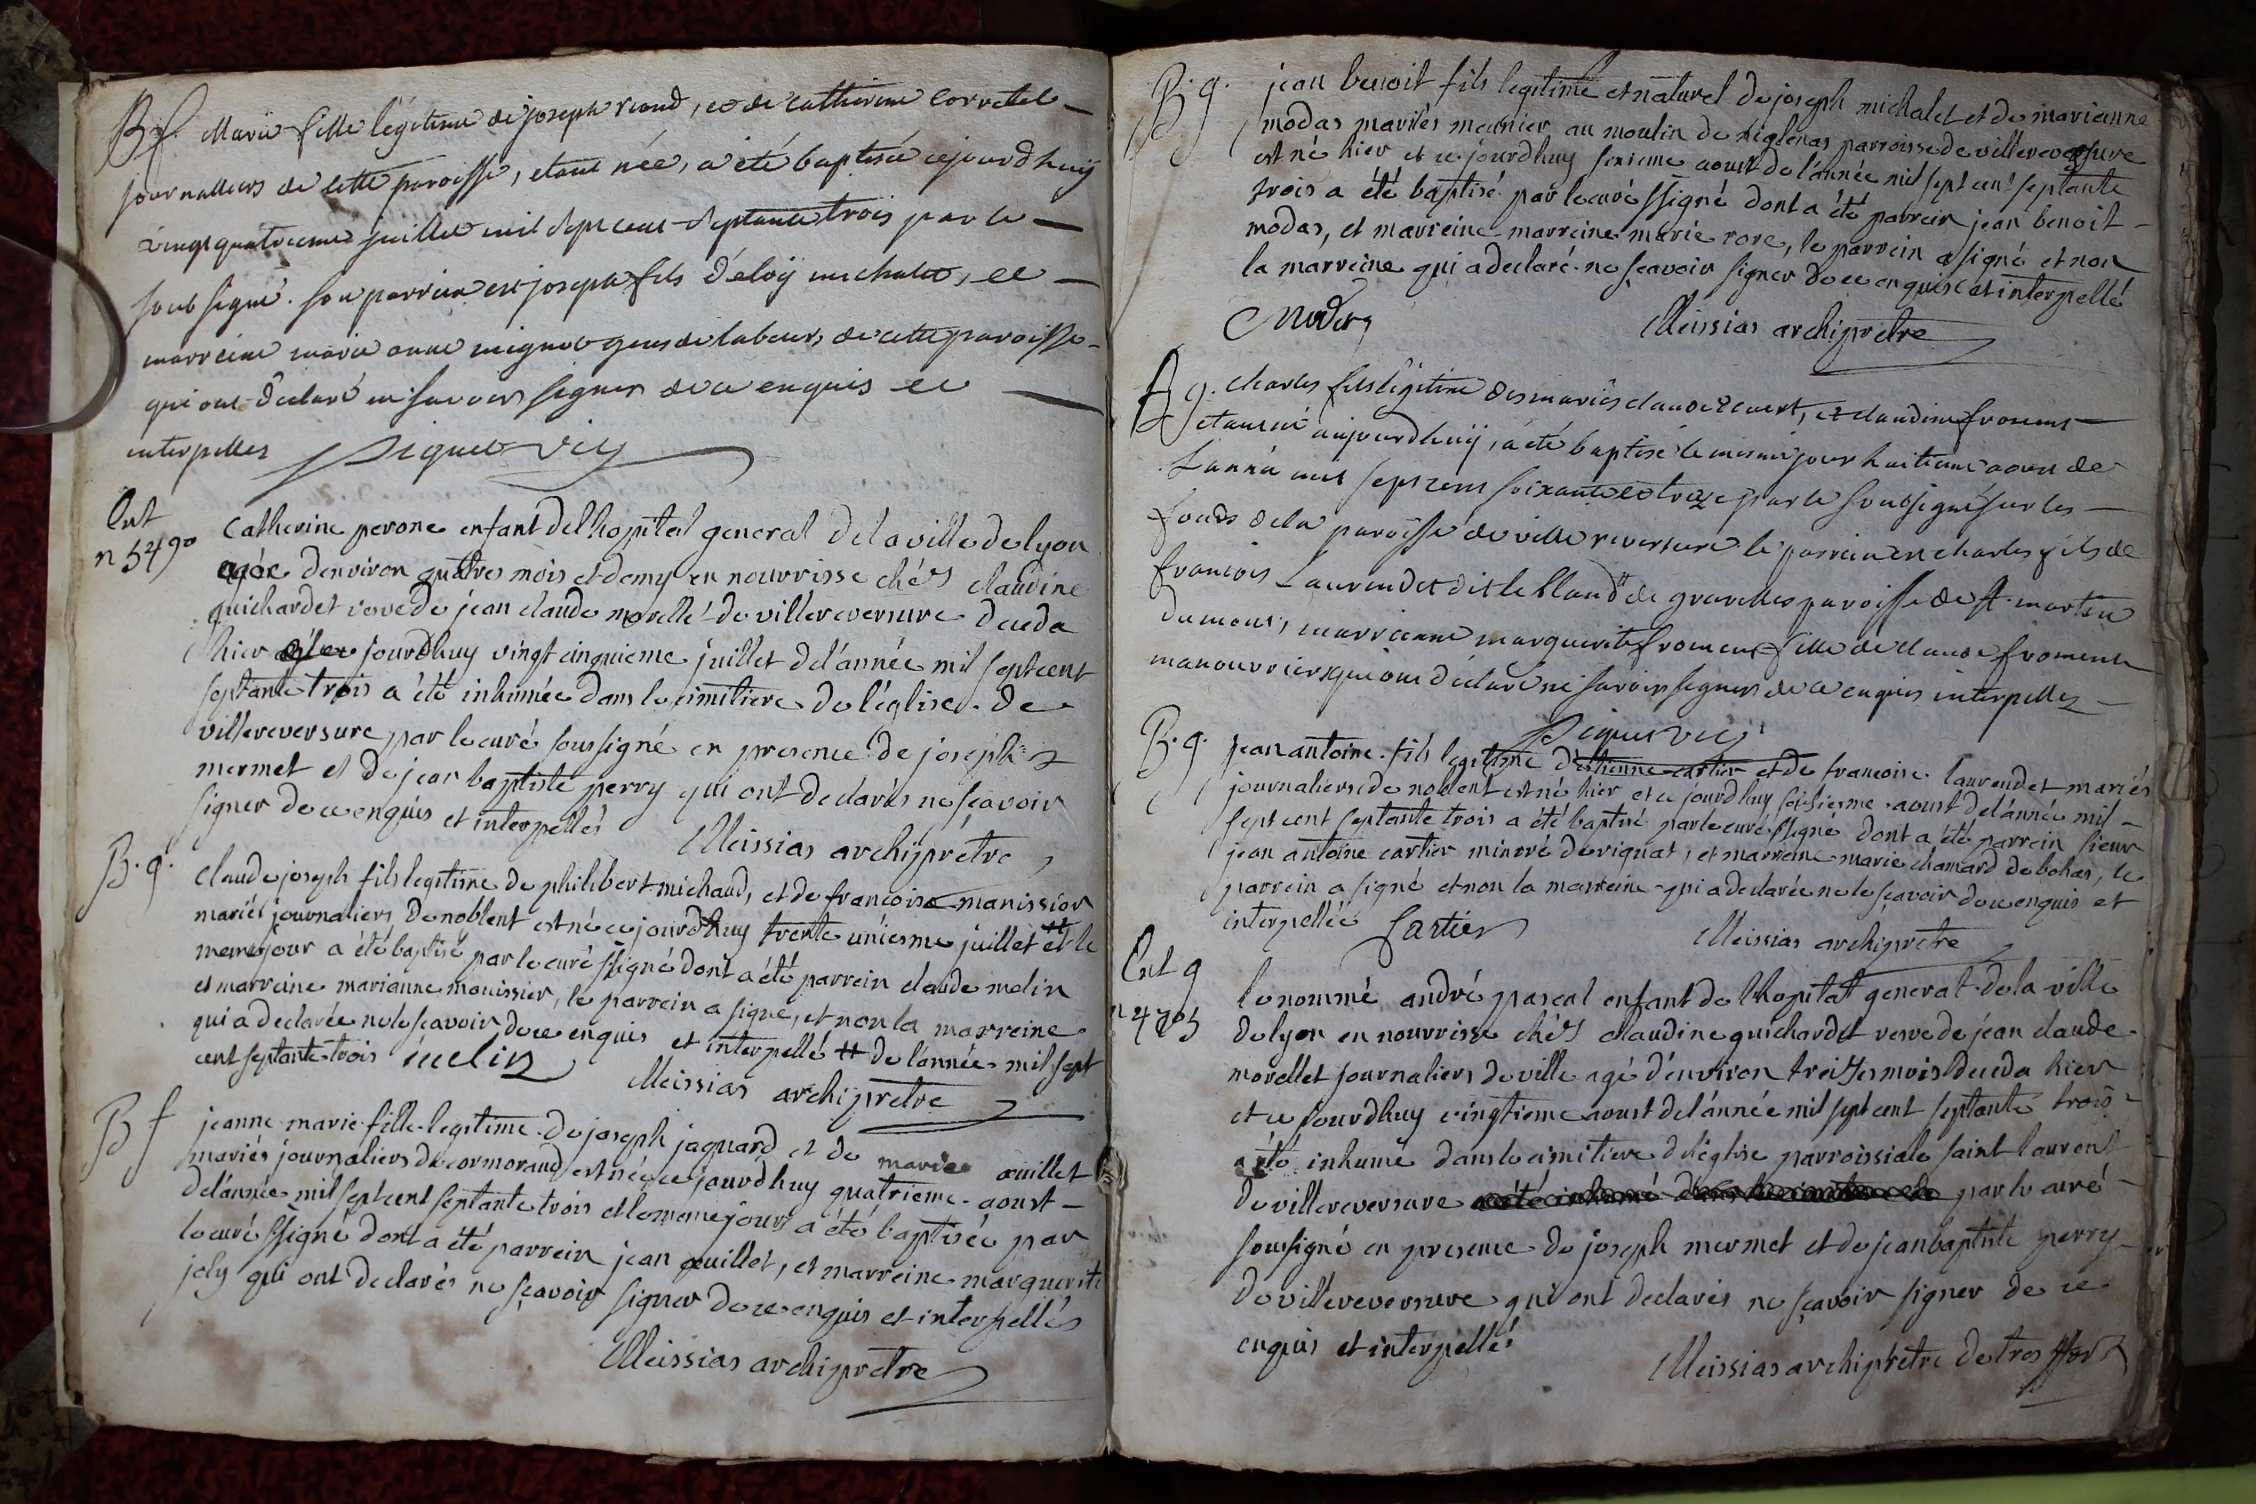 B. f. Marie fille légitime de joseph riond, et de catherine corretel
journaliers de cette paroisse, étant née, a été baptisée cejourdhuy
vingt quatrieme juillet mil sept cent septante trois par le
sous signé. son parrein est joseph fils d'eloÿ michalet, et
marreine marie anne mignot gens de labeurs de cette paroisse
qui ont déclaré ne savoir signer de ce enquis et
interpelles piquet vic
Ent
n 5490
catherine perone enfant de l'hopital general de la ville de lyon
agée d'environ quatres mois et demy en nourrisse chés claudine
guichardet veve de jean claude morellé de villereversure deceda
hier et ce jourdhuy vingt cinquieme juillet de l'année mil sept cent
septante trois a été inhumée dans le cimitiere de l'église de
villereversure par le curé soussigné en presence de joseph
mermet et de jean baptiste perry qui ont declarés ne sçavoir
signer de ce enquis et interpellés Meissias archiprêtre
B. g. claude joseph fils legitime de philibert michaud, et de francoise manissior
mariés journaliers de noblent est né ce jourdhuy trente uniesme juillet ⧺ et le
meme jour a été baptisé par le curé ssigné dont a été parrein claude melin
et marreine marianne manissier, le parrein a signé, et non la marreine
qui a declarée ne le sçavoir de ce enquis et interpellé ⧺ de l'année mil sept
cent septante trois melin Meissias archiprêtre
B f jeanne marie fille legitime de joseph jaquard et de marie ouillet
mariés journaliers de cormorand est née ce jourdhuy quatrieme aoust
de l'année mil sept cent septante trois et le meme jour a été baptisée par
le curé ssigné dont a été parrein jean ouillet, et marreine marguerite
joly qui ont declarés ne sçavoir signer de ce enquis et interpellés
Meissias archiprêtre
B. g. jean benoit fils legitime et naturel de joseph michalet et de marianne
modas mariés meunier au moulin de noglenas parroisse de villereversure
est né hier et ce jourdhuy sixieme aoust de l'année mil sept cent septante
trois a été baptisé par le curé ssigné dont a été parrein jean benoit
modas, et marreine marreine marie rore, le parrein a signé et non
la marreine qui a declaré ne sçavoir signer de ce enquise et interpellé
Modas Meissias archiprêtre
B g. charles fils légitime des mariés claude ecuert, et claudine froment
etant né aujourdhuÿ, a été baptisé le mesme jour huitieme aout de
l'année mil sept cent soixante et treize par le soussigné sur les
fonds de la paroisse de villereversure le parrein est charles fils de
francois laurendet dit le bland de gravelles paroisse de st. martin
du mont, marreine marguerite froment fille de claude froment
manouvriers qui ont déclaré ne savoir signer de ce enquis interpelles
piquet vic
B. g. jean antoine fils legitime d'estienne cartier et de francoise laurendet mariés
journaliers de noblent est né hier et ce jourdhuy seisiesme aoust de l'année mil
sept cent septante trois a été baptisé par le curé ssigné dont a été parrein sieur
jean antoine cartier minoré de rignat, et marreine marie chamard de bohas, le
parrein a signé et non la marreine qui a declarée ne le sçavoir de ce enquis et
interpellée Cartier Meissias archiprêtre
Ent g
n 4705
le nommé andré pascal enfant de l'hopital general de la ville
de lyon en nourrisse chés claudine guichardet veve de jean claude
morellet journaliers de ville agé d'environ treises mois deceda hier
et ce jourdhuy vingtieme aoust de l'année mil sept cent septante trois
a été inhumé dans le cimitiere de l'église parroissiale saint laurent
de villereversure par le curé
soussigné en presence de joseph mermet et de jean baptiste perry
de villereversure qui ont declarés ne sçavoir signer de ce
enquis et interpellés
Meissias archiprêtre de treffort